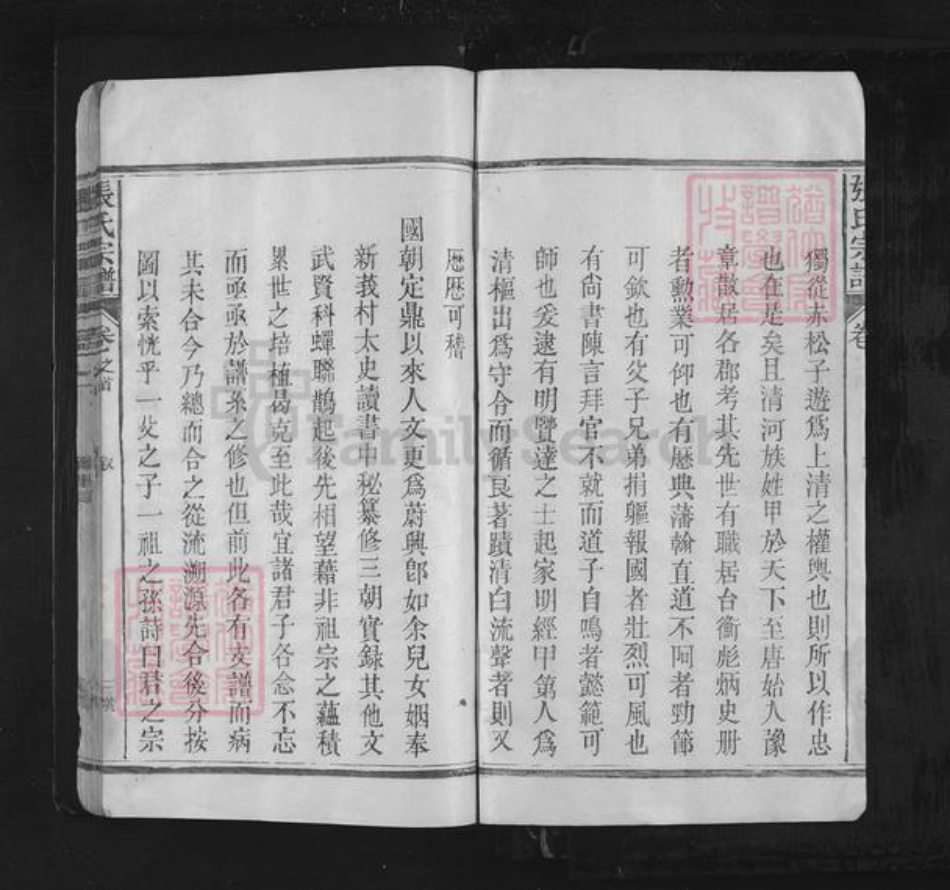 獨從赤松子遊爲上清之權輿也則所以作忠
也在是矣且清河族姓甲於天下至唐始人豫
章散居各郡考其先世有職居台衡彪炳史册
者勲業可仰也有歷典藩翰直道不阿者勁節
可欽也有父子兄弟捐軀報國者壯烈可風也
有尚書陳言拜官不就而道子自鳴者懿範可
師也爰逮有明賢達之士起家明經甲第人爲
清樞出爲守令而循良著蹟清白流聲者則又
歷歷可稽
國朝定鼎以來人文更爲蔚興卽如余兒女姻奉
新莪村太史讀書中秘纂修三朝實録其他文
武賢科蟬聯鵲起後先相望藉非祖宗之蘊積
累世之培植曷克至此哉宜諸君子各念不忘
而亟亟於譜系之修也但前此各有支譜而病
其未合今乃總而合之從流溯源先合後分按
圖以索恍乎一父之子一祖之孫詩曰君之宗
張氏宗譜 卷之首 叙
張氏宗譜 卷
FamilySearch